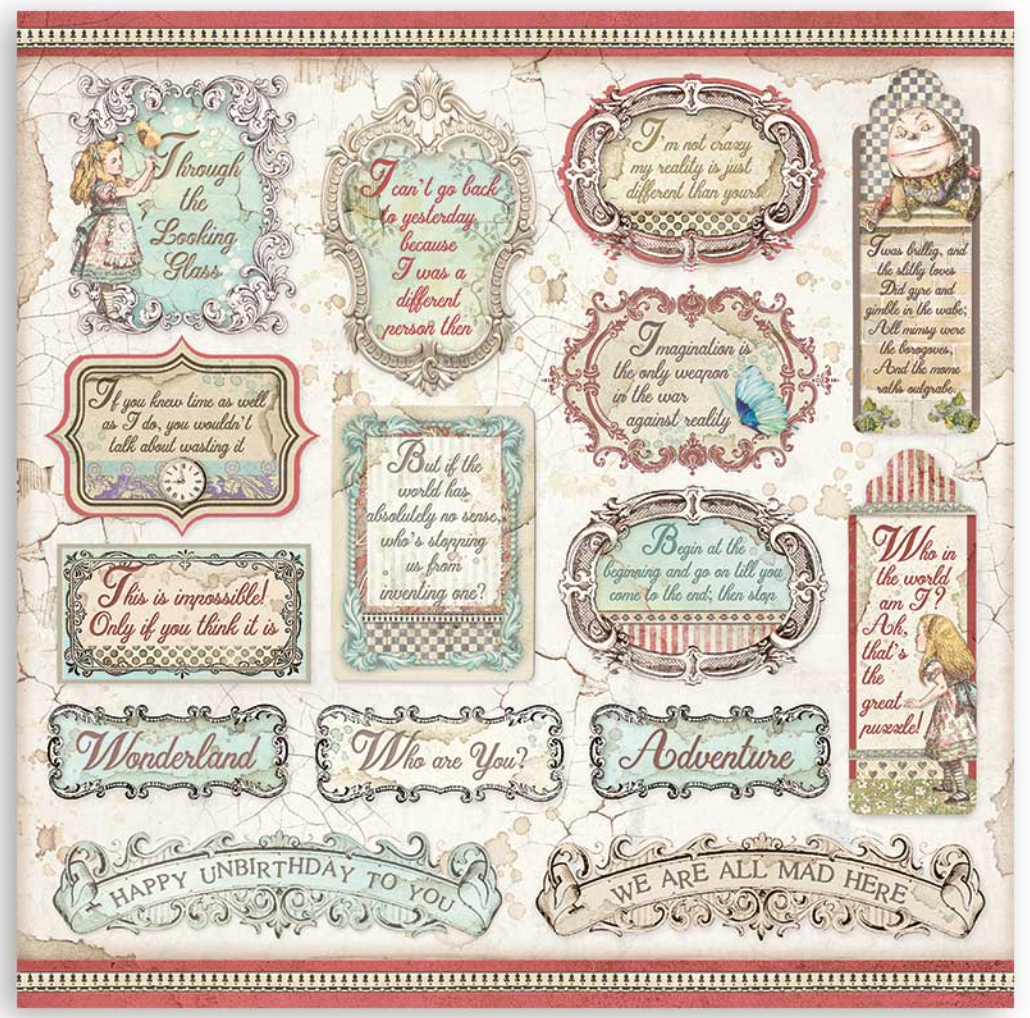 Through
the
Looking
Glass
I can't go back
to yesterday
because
I was a
different
person then
I'm not crazy
my reality is just
different than yours
Twas brillig, and
the slithy toves
Did gyre and
gimble in the wabe;
All mimsy were
the borogoves,
And the mome
raths outgrabe.
If you knew time as well
as I do, you wouldn't
talk about wasting it
Imagination is
the only weapon
in the war
against reality
But if the
world has
absolutely no sense,
who's stopping
us from
inventing one?
This is impossible!
Only if you think it is
Begin at the
beginning and go on till you
come to the end; then stop
Who in
the world
am I?
Ah,
that's
the
great
puzzle!
Wonderland
Who are You?
Adventure
HAPPY UNBIRTHDAY TO YOU
WE ARE ALL MAD HERE